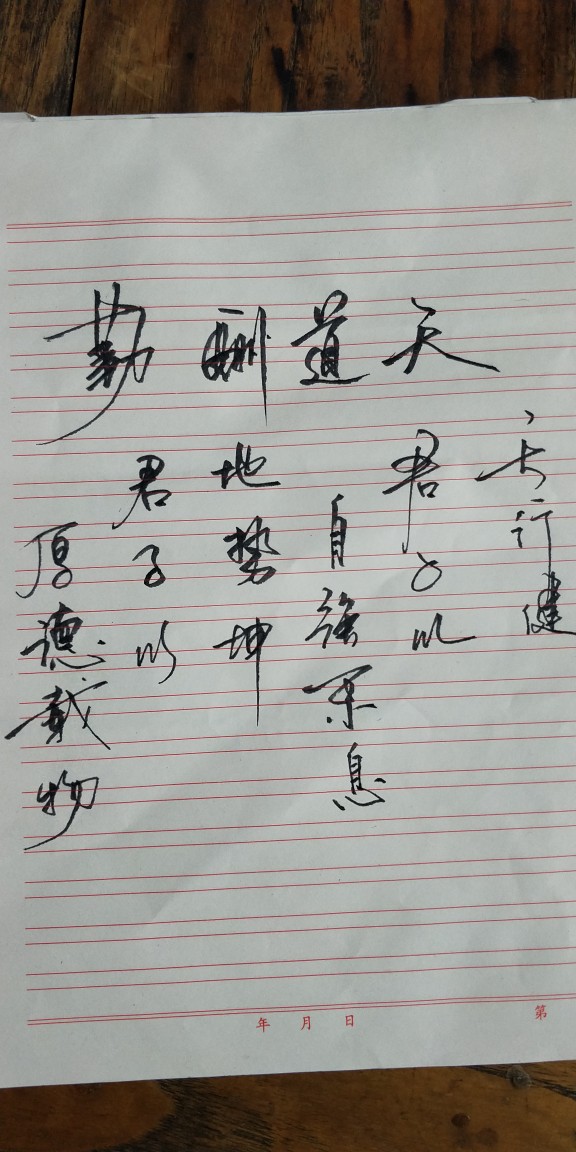 天道酬勤
天行健
君子以
自強不息
地势坤
君子以
厚德载物
年 月 日
第